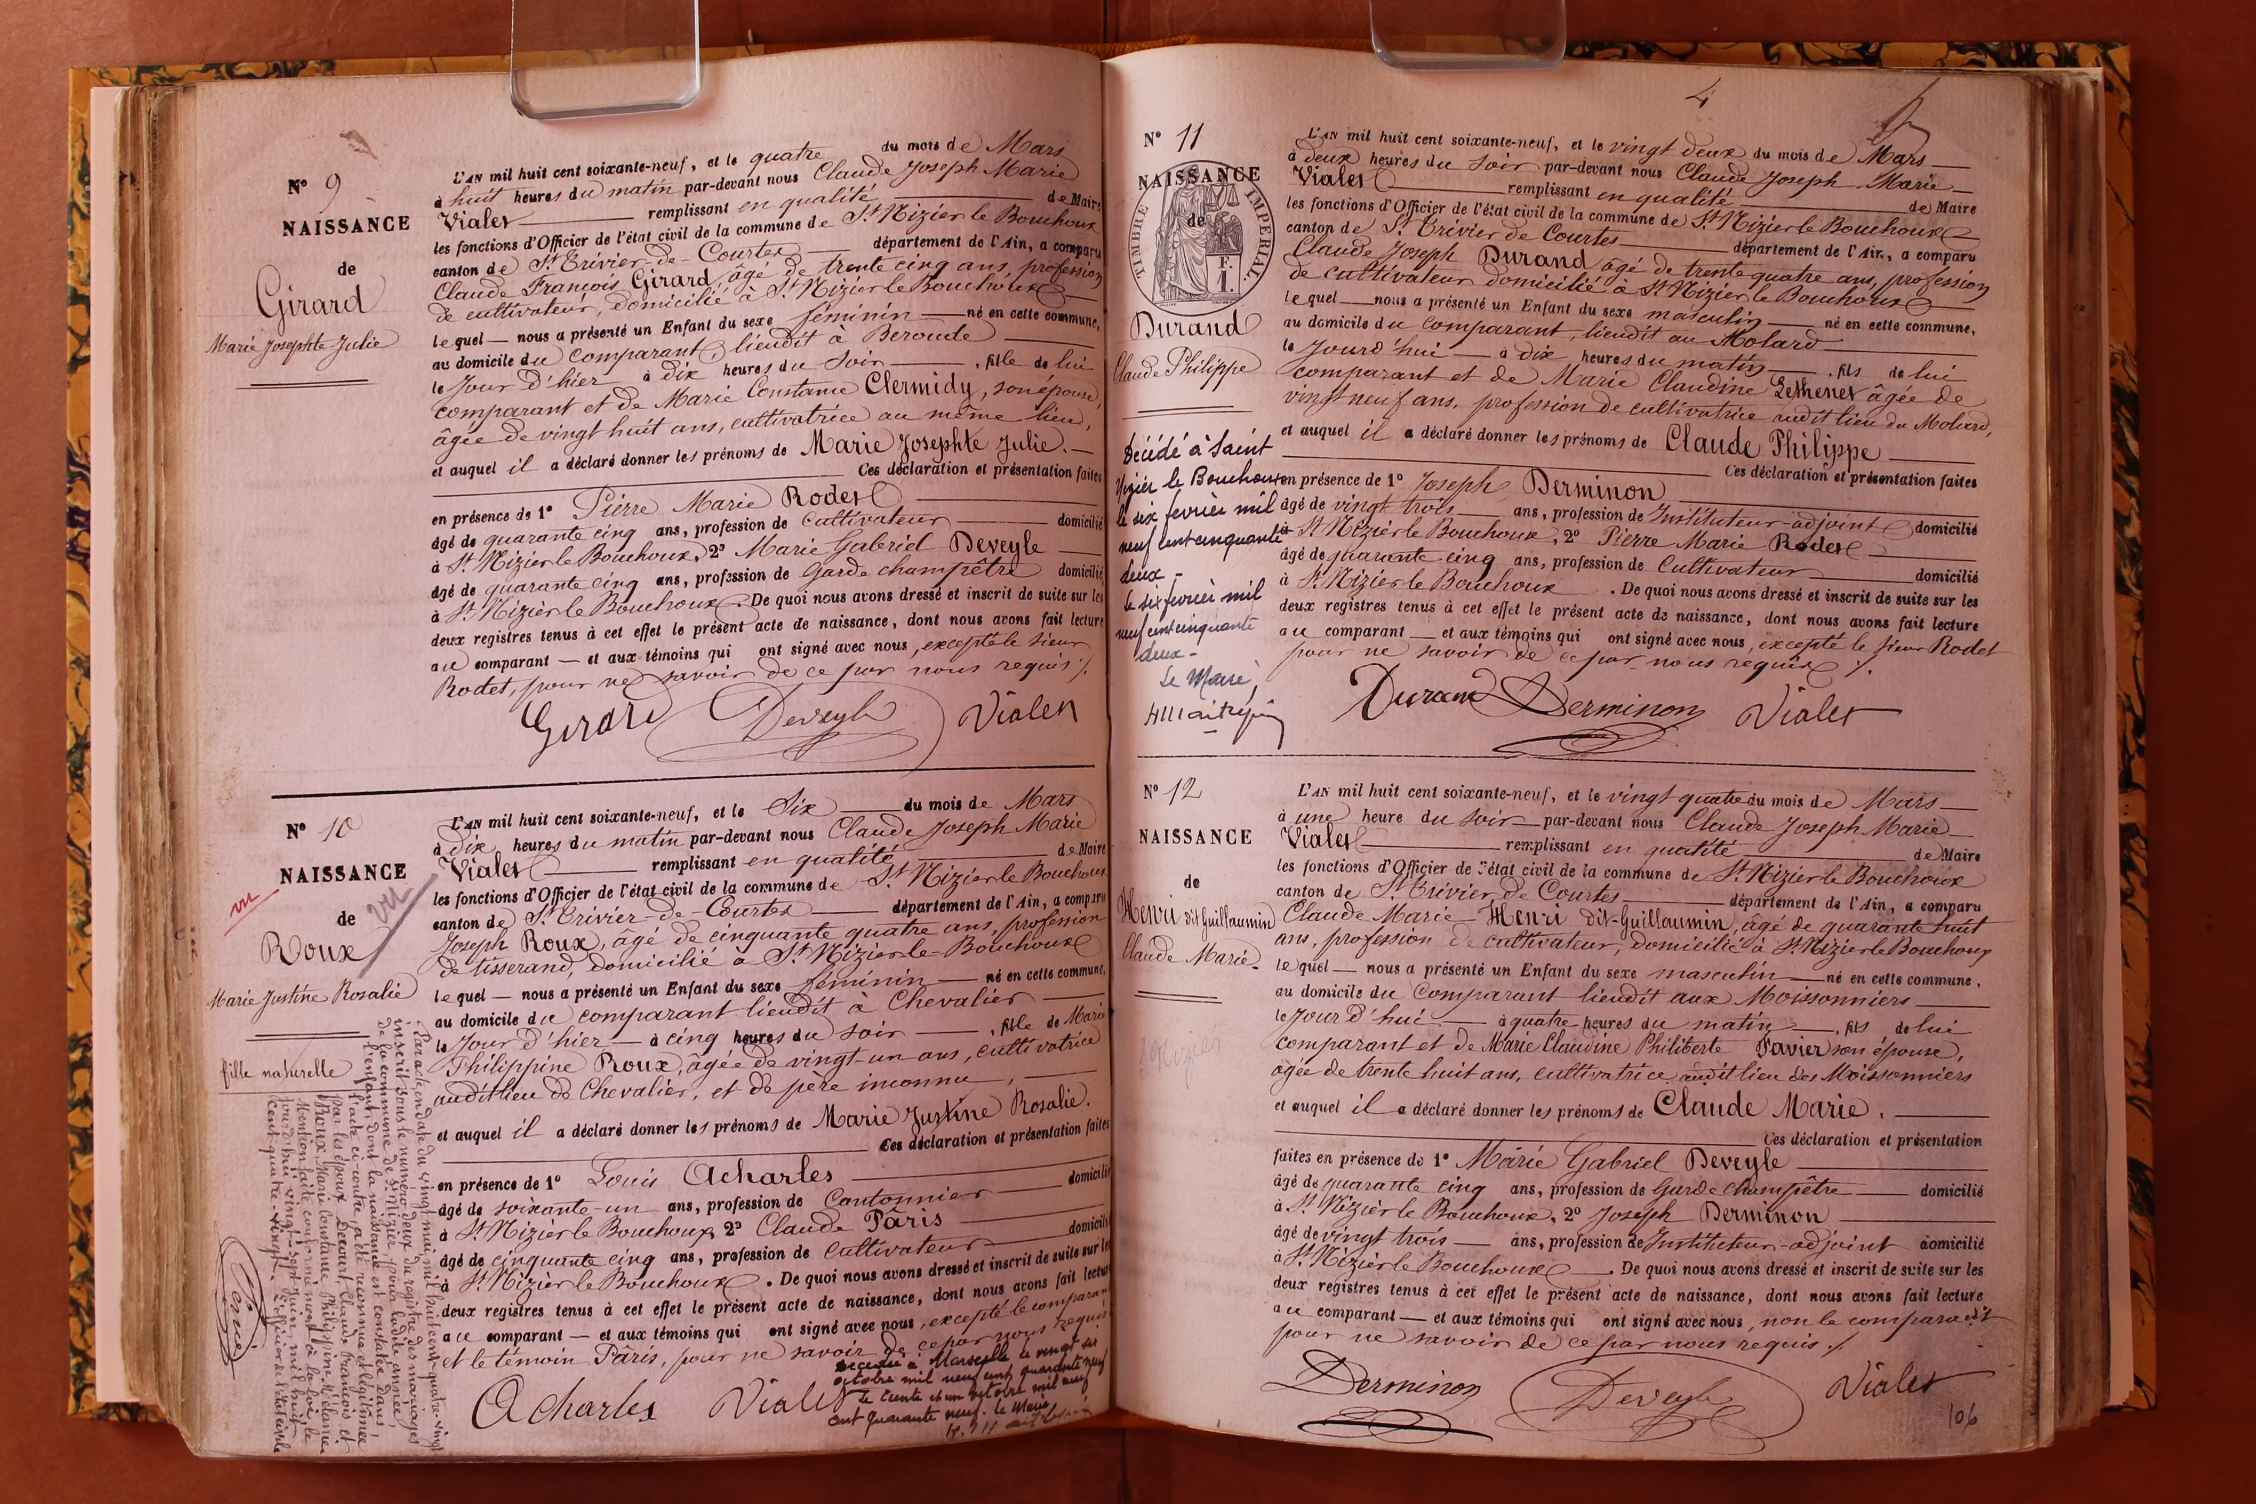 N° 9
NAISSANCE
de
Girard
Marie Josephte Julie
L'AN mil huit cent soixante-neuf, et le quatre du mois de Mars
à huit heures du matin par-devant nous Claude Joseph Marie
Vialet remplissant en qualité de Maire
les fonctions d'Officier de l'état civil de la commune de St Nizier le Bouchoux
canton de St Trivier-de-Courtes département de l'Ain, a comparu
Claude François Girard, âgé de trente cinq ans, profession
de cultivateur, domicilié à St Nizier le Bouchoux
lequel — nous a présenté un Enfant du sexe féminin — né en cette commune,
au domicile du comparant, lieudit à Beroude
le Jour d'hier à dix heures du soir, fille de lui
comparant et de Marie Constance Clermidy, son épouse,
âgée de vingt huit ans, cultivatrice au même lieu,
et auquel il a déclaré donner les prénoms de Marie Josephte Julie. —
Ces déclaration et présentation faites
en présence de 1° Pierre Marie Rodet
âgé de quarante cinq ans, profession de cultivateur domicilié
à St Nizier le Bouchoux, 2° Marie Gabriel Deveyle
âgé de quarante cinq ans, profession de Garde champêtre domicilié
à St Nizier le Bouchoux. De quoi nous avons dressé et inscrit de suite sur les
deux registres tenus à cet effet le présent acte de naissance, dont nous avons fait lecture
au comparant — et aux témoins qui ont signé avec nous, excepté le sieur
Rodet, pour ne savoir de ce par nous requis ./.
Girard Deveyle Vialet
N° 10
NAISSANCE
vu
vu
de
Roux
Marie Justine Rosalie
fille naturelle
Par acte, en date du vingt mai, mil huit cent-quatre-vingt
inscrit sous le numéro deux du registre des mariages
de la commune de St Nizier, pour ladite année,
l'enfant dont la naissance est constatée dans
l'acte ci-contre, a été reconnue et légitimée
par les époux Claude François et
Roux Marie Constance Philippine Mélanie
Mention faite conformément à la loi, le
jourd'hui vingt-sept juin, mil huit
cent-quatre-vingt. L'officier de l'état civil
L'AN mil huit cent soixante-neuf, et le Six du mois de Mars
à dix heures du matin par-devant nous Claude Joseph Marie
Vialet remplissant en qualité de Maire
les fonctions d'Officier de l'état civil de la commune de St Nizier le Bouchoux
canton de St Trivier-de-Courtes département de l'Ain, a comparu
Joseph Roux, âgé de cinquante quatre ans, profession
de tisserand, domicilié à St Nizier-le-Bouchoux
lequel — nous a présenté un Enfant du sexe féminin — né en cette commune,
au domicile du comparant lieudit à Chevalier
le Jour d'hier — à cinq heures du soir, fille de Marie
Philippine Roux, âgée de vingt-un ans, cultivatrice
audit lieu de Chevalier, et de père inconnu,
et auquel il a déclaré donner les prénoms de Marie Justine Rosalie.
Ces déclaration et présentation faites
en présence de 1° Louis Acharles domicilié
âgé de soixante-un ans, profession de Cantonnier
à St Nizier le Bouchoux, 2° Claude Pâris domicilié
âgé de cinquante cinq ans, profession de cultivateur
à St Nizier le Bouchoux. De quoi nous avons dressé et inscrit de suite sur les
deux registres tenus à cet effet le présent acte de naissance, dont nous avons fait lecture
au comparant — et aux témoins qui ont signé avec nous, excepté le comparant
et le témoin Pâris, pour ne savoir de ce par nous requis
Acharles Vialet
Décédée à Marseille le vingt six
octobre mil neuf cent quarante neuf
Le trente et un octobre mil neuf
cent quarante neuf. Le Maire
4
N° 11
NAISSANCE
de
TIMBRE IMPERIAL
F.
1.
Durand
Claude Philippe
Décédé à Saint
Nizier le Bouchoux
le six février mil
neuf cent cinquante
deux -
Le six février mil
neuf cent cinquante
deux -
Le Maire,
L'AN mil huit cent soixante-neuf, et le vingt deux du mois de Mars
à deux heures du soir par-devant nous Claude Joseph Marie
Vialet remplissant en qualité de Maire
les fonctions d'Officier de l'état civil de la commune de St Nizier le Bouchoux
canton de St Trivier de Courtes département de l'Ain, a comparu
Claude Joseph Durand âgé de trente quatre ans, profession
de cultivateur domicilié à St Nizier le Bouchoux
lequel — nous a présenté un Enfant du sexe masculin — né en cette commune,
au domicile du comparant, lieudit au Molard
le Jourd'hui — à dix heures du matin, fils de lui
comparant et de Marie Claudine Lethenet âgée de
vingt neuf ans, profession de cultivatrice audit lieu du Molard,
et auquel il a déclaré donner les prénoms de Claude Philippe
Ces déclaration et présentation faites
en présence de 1° Joseph Derminon
âgé de vingt trois ans, profession de Instituteur-adjoint domicilié
à St Nizier le Bouchoux, 2° Pierre Marie Rodet
âgé de quarante cinq ans, profession de Cultivateur domicilié
à St Nizier le Bouchoux. De quoi nous avons dressé et inscrit de suite sur les
deux registres tenus à cet effet le présent acte de naissance, dont nous avons fait lecture
au comparant — et aux témoins qui ont signé avec nous, excepté le sieur Rodet
pour ne savoir de ce par nous requis ./.
Durand Derminon Vialet
N° 12
NAISSANCE
de
Henri dit Guillaumin
Claude Marie
L'AN mil huit cent soixante-neuf, et le vingt quatre du mois de Mars
à une heure du soir par-devant nous Claude Joseph Marie
Vialet remplissant en qualité de Maire
les fonctions d'Officier de l'état civil de la commune de St Nizier le Bouchoux
canton de St Trivier de Courtes département de l'Ain, a comparu
Claude Marie Henri dit-Guillaumin, âgé de quarante huit
ans, profession de cultivateur, domicilié à St Nizier le Bouchoux
lequel — nous a présenté un Enfant du sexe masculin — né en cette commune,
au domicile du comparant lieudit aux Moissonniers
le Jour d'hui — à quatre heures du matin, fils de lui
comparant et de Marie Claudine Philiberte Favier son épouse,
âgée de trente huit ans, cultivatrice audit lieu des Moissonniers
et auquel il a déclaré donner les prénoms de Claude Marie.
Ces déclaration et présentation
faites en présence de 1° Marie Gabriel Deveyle
âgé de quarante cinq ans, profession de Garde champêtre domicilié
à St Nizier le Bouchoux, 2° Joseph Derminon
âgé de vingt trois ans, profession de Instituteur-adjoint domicilié
à St Nizier le Bouchoux. De quoi nous avons dressé et inscrit de suite sur les
deux registres tenus à cet effet le présent acte de naissance, dont nous avons fait lecture
au comparant — et aux témoins qui ont signé avec nous, non le comparant
pour ne savoir de ce par nous requis ./.
Derminon Deveyle Vialet
106